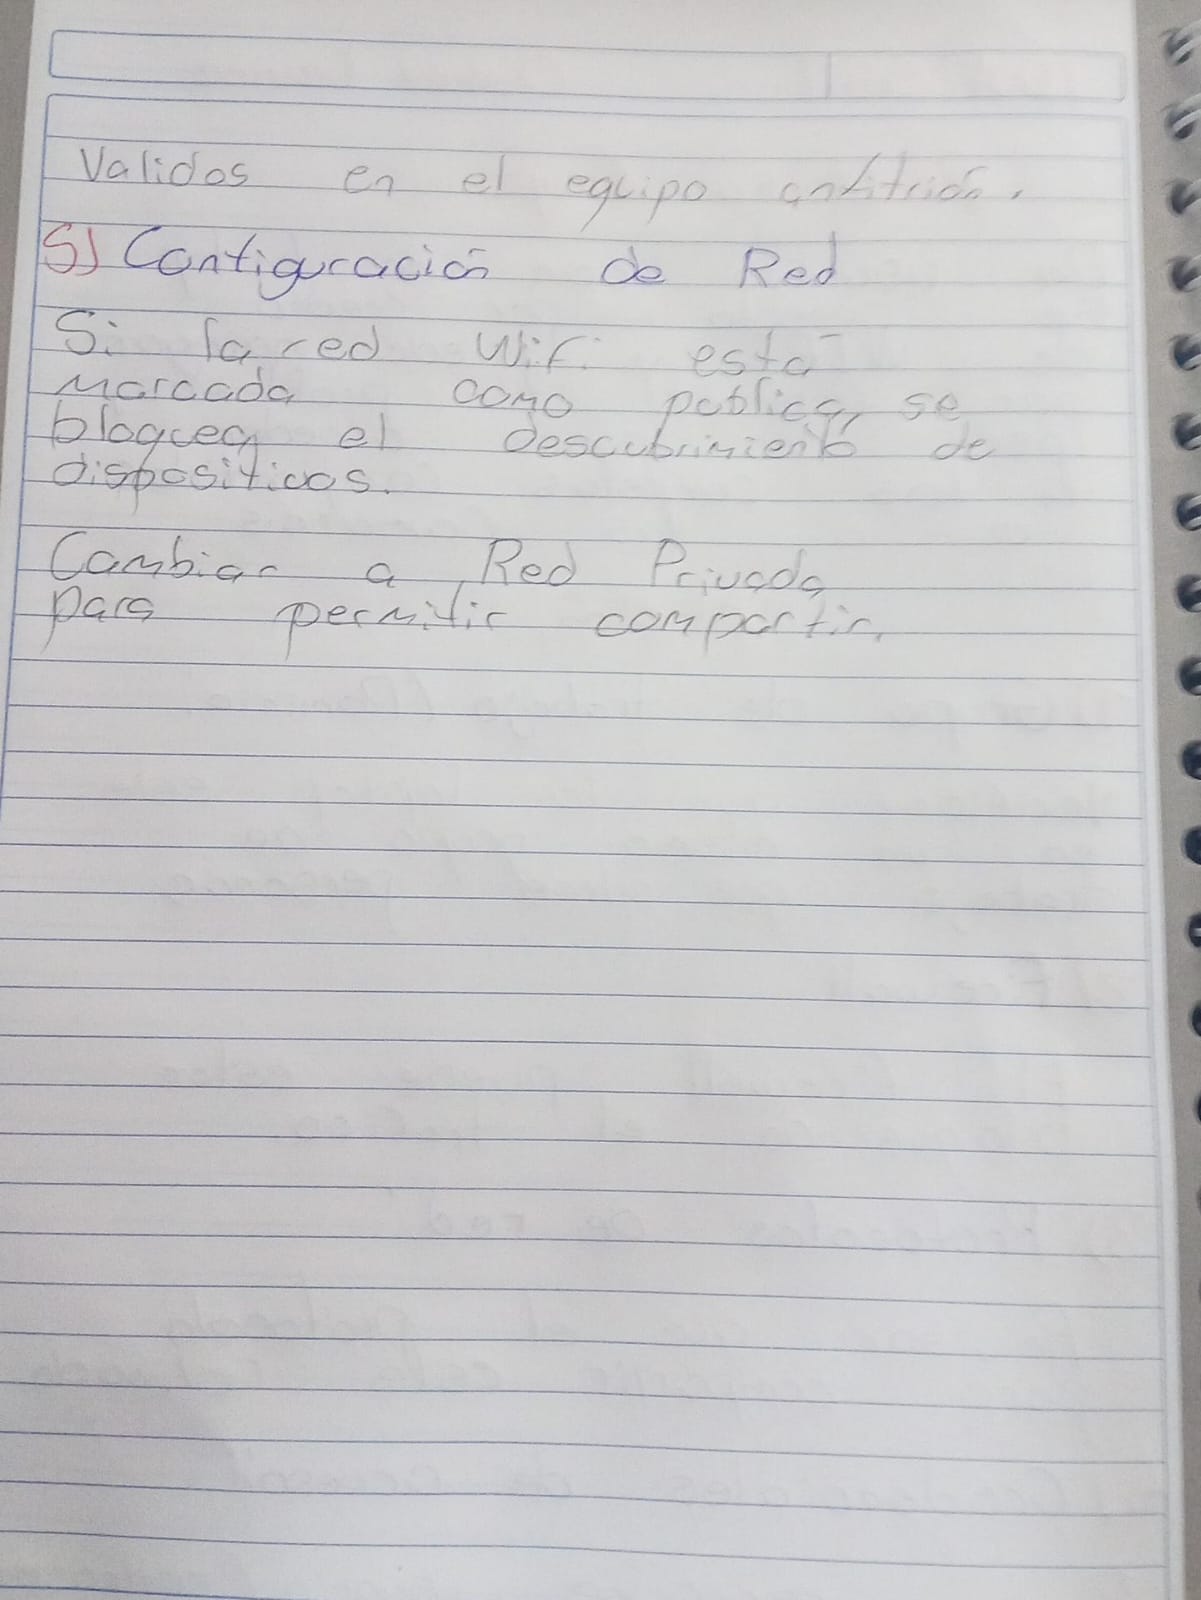 Validos en el equipo anfitrión.
5) Configuración de Red
Si la red Wifi está
Marcada como publica, se
bloquea el descubrimiento de
dispositivos.
Cambiar a Red Privada
para permitir compartir.